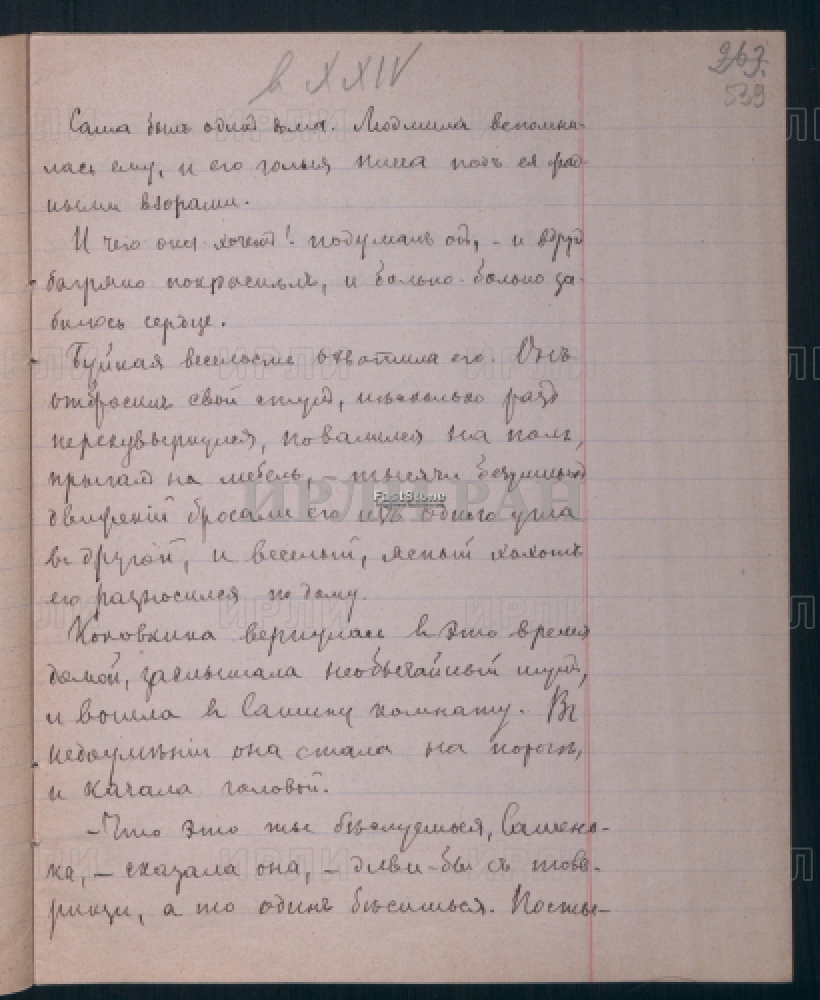 в XXIV
263.
539
Саша былъ одинъ дома. Людмила вспомни-
лась ему, и его голыя плеча подъ ея
ными взорами.
И чего она хочетъ! подумалъ онъ, – и вдругъ
багряно покраснѣлъ, и больно-больно за-
билось сердце.
Буйная веселость охватила его. Онъ
отбросилъ свой стулъ, нѣсколько разъ
перекувыркнулся, повалился на полъ,
прыгалъ на мебель, – тысячи безумныхъ
движеній бросали его изъ одного угла
въ другой, и веселый, ясный хохотъ
его разносился по дому.
Коковкина вернулась въ это время
домой, заслышала необычайный шумъ,
и вошла въ Сашину комнату. Въ
недоумѣніи она стала на порогѣ,
и качала головой.
– Что это ты бѣснуешься, Сашень-
ка, – сказала она, – диви-бы съ това-
рищи, а то одинъ бѣсишься. Посты-
ИРЛИ РАН
FirstStone